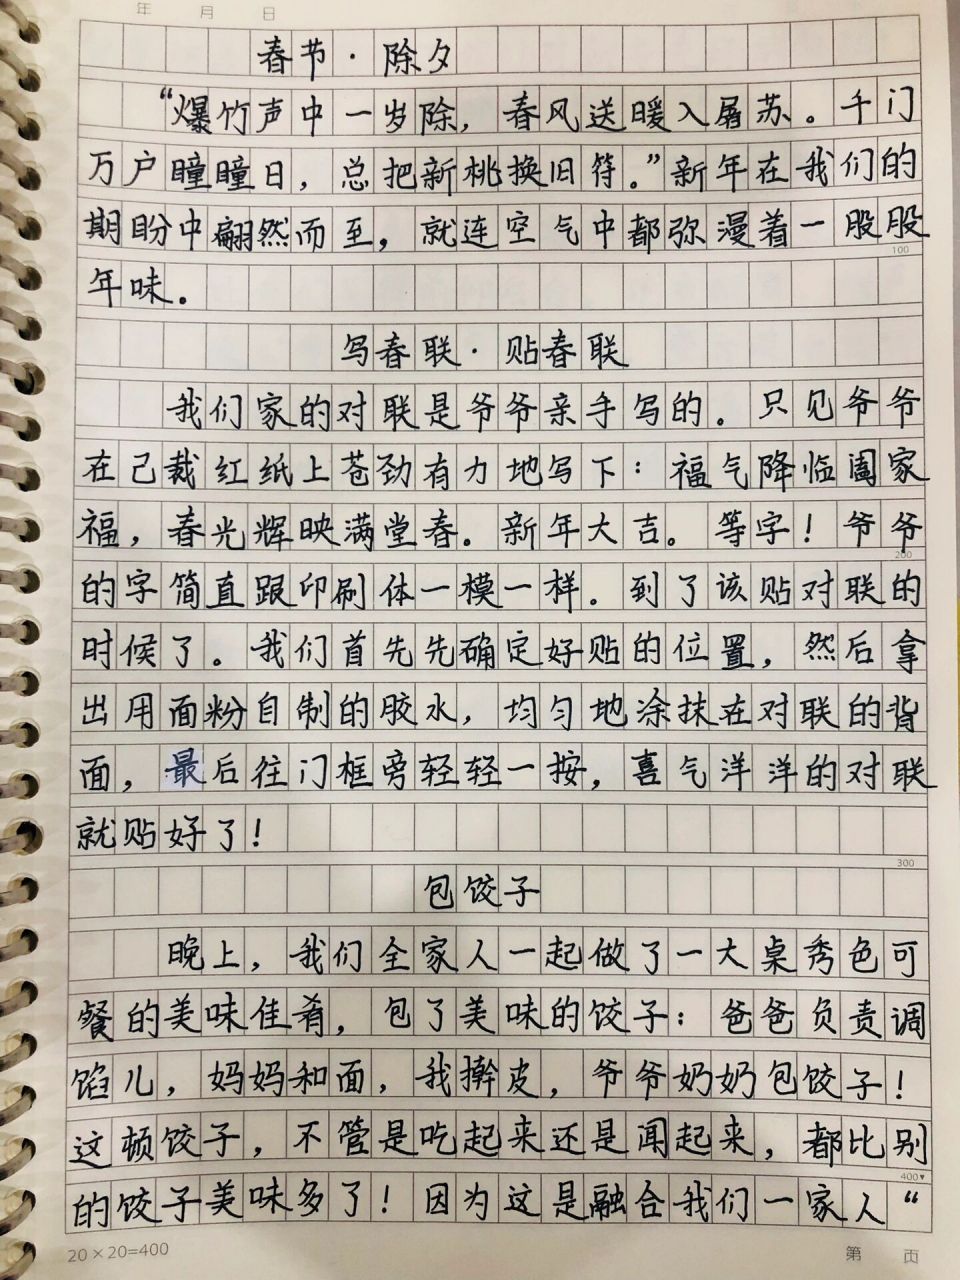 年 月 日
春节·除夕
“爆竹声中一岁除，春风送暖入屠苏。千门
万户瞳瞳日，总把新桃换旧符。”新年在我们的
期盼中翩然而至，就连空气中都弥漫着一股股
100
年味。
写春联·贴春联
我们家的对联是爷爷亲手写的。只见爷爷
在己裁红纸上苍劲有力地写下：福气降临阖家
福，春光辉映满堂春。新年大吉。等字！爷爷
200
的字简直跟印刷体一模一样。到了该贴对联的
时候了。我们首先先确定好贴的位置，然后拿
出用面粉自制的胶水，均匀地涂抹在对联的背
面，最后往门框旁轻轻一按，喜气洋洋的对联
就贴好了！
300
包饺子
晚上，我们全家人一起做了一大桌秀色可
餐的美味佳肴，包了美味的饺子：爸爸负责调
馅儿，妈妈和面，我擀皮，爷爷奶奶包饺子！
这顿饺子，不管是吃起来还是闻起来，都比别
400▼
的饺子美味多了！因为这是融合我们一家人“
20×20=400 第 页